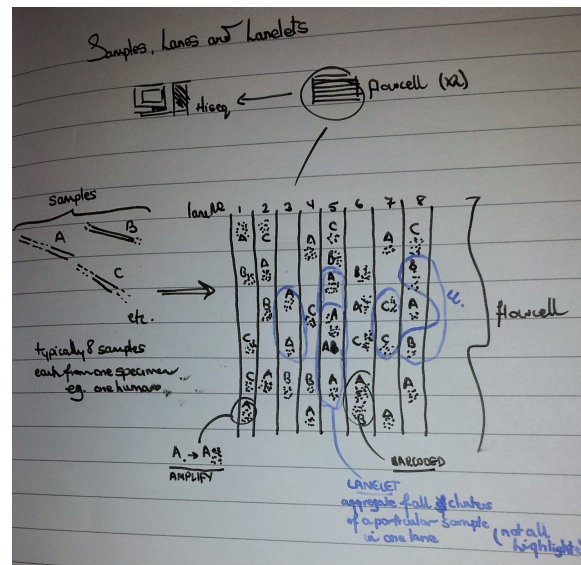 Samples, Lanes and Lanelets
flowcell (x2)
Hiseq
samples
A
B
C
etc.
lane №
1 2 3 4 5 6 7 8
flowcell
typically 8 samples
each from one specimen
eg. one human
A. → A
AMPLIFY
BARCODED
LANELET
aggregate of all clusters
of a particular sample
in one lane
(not all
highlighte